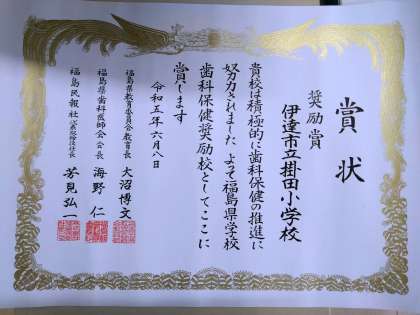 賞状
奨励賞
伊達市立掛田小学校
貴校は積極的に歯科保健の推進に
努力されました よって福島県学校
歯科保健奨励校としてここに
賞します
令和五年六月八日
福島県教育委員会教育長 大沼博文
福島県歯科医師会会長 海野仁
福島民報社代表取締役社長 芳見弘一